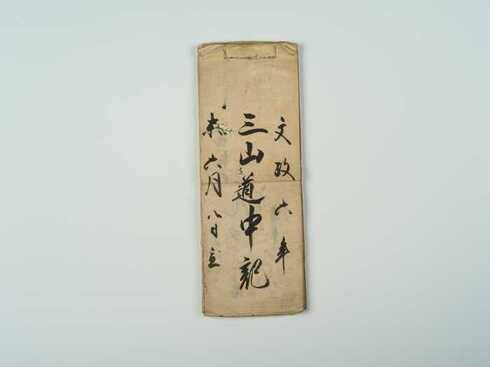 文政六年
三山道中記
未六月八日立